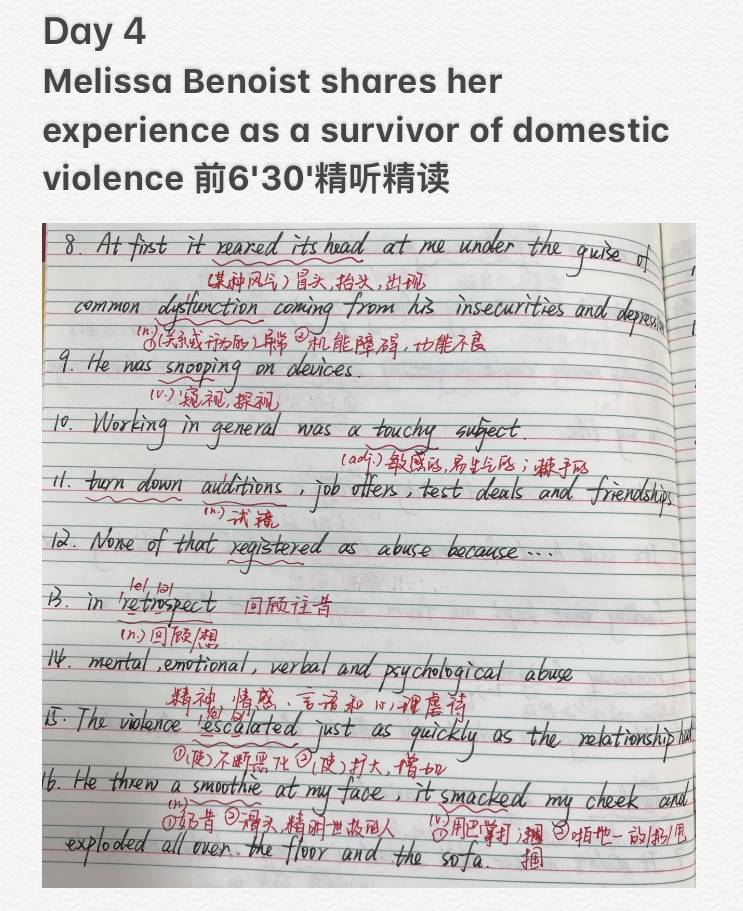 Day 4
Melissa Benoist shares her
experience as a survivor of domestic
violence 前6'30'精听精读
8. At first it reared its head at me under the guise of
(某种风气)冒头,抬头,出现
common dysfunction coming from his insecurities and depression
(n.)①(关系或行为的)异常 ②机能障碍,功能不良
9. He was snooping on devices.
(v.)窥视,探视
10. Working in general was a touchy subject.
(adj.)敏感的,易生气的;棘手的
11. turn down auditions, job offers, test deals and friendships
(n.)试镜
12. None of that registered as abuse because...
/e/ /ə/
13. in 'retrospect 回顾往昔
(n.)回顾/想
14. mental, emotional, verbal and psychological abuse
精神、情感、言语和心理虐待
15. The violence 'escalated just as quickly as the relationship had
①(使)不断恶化②(使)扩大,增加
16. He threw a smoothie at my face, it smacked my cheek and
(n.)①奶昔 ②滑头,精明世故的人 (v.)①用巴掌打,掴 ②啪地一放/扔/甩
exploded all over the floor and the sofa. 掴